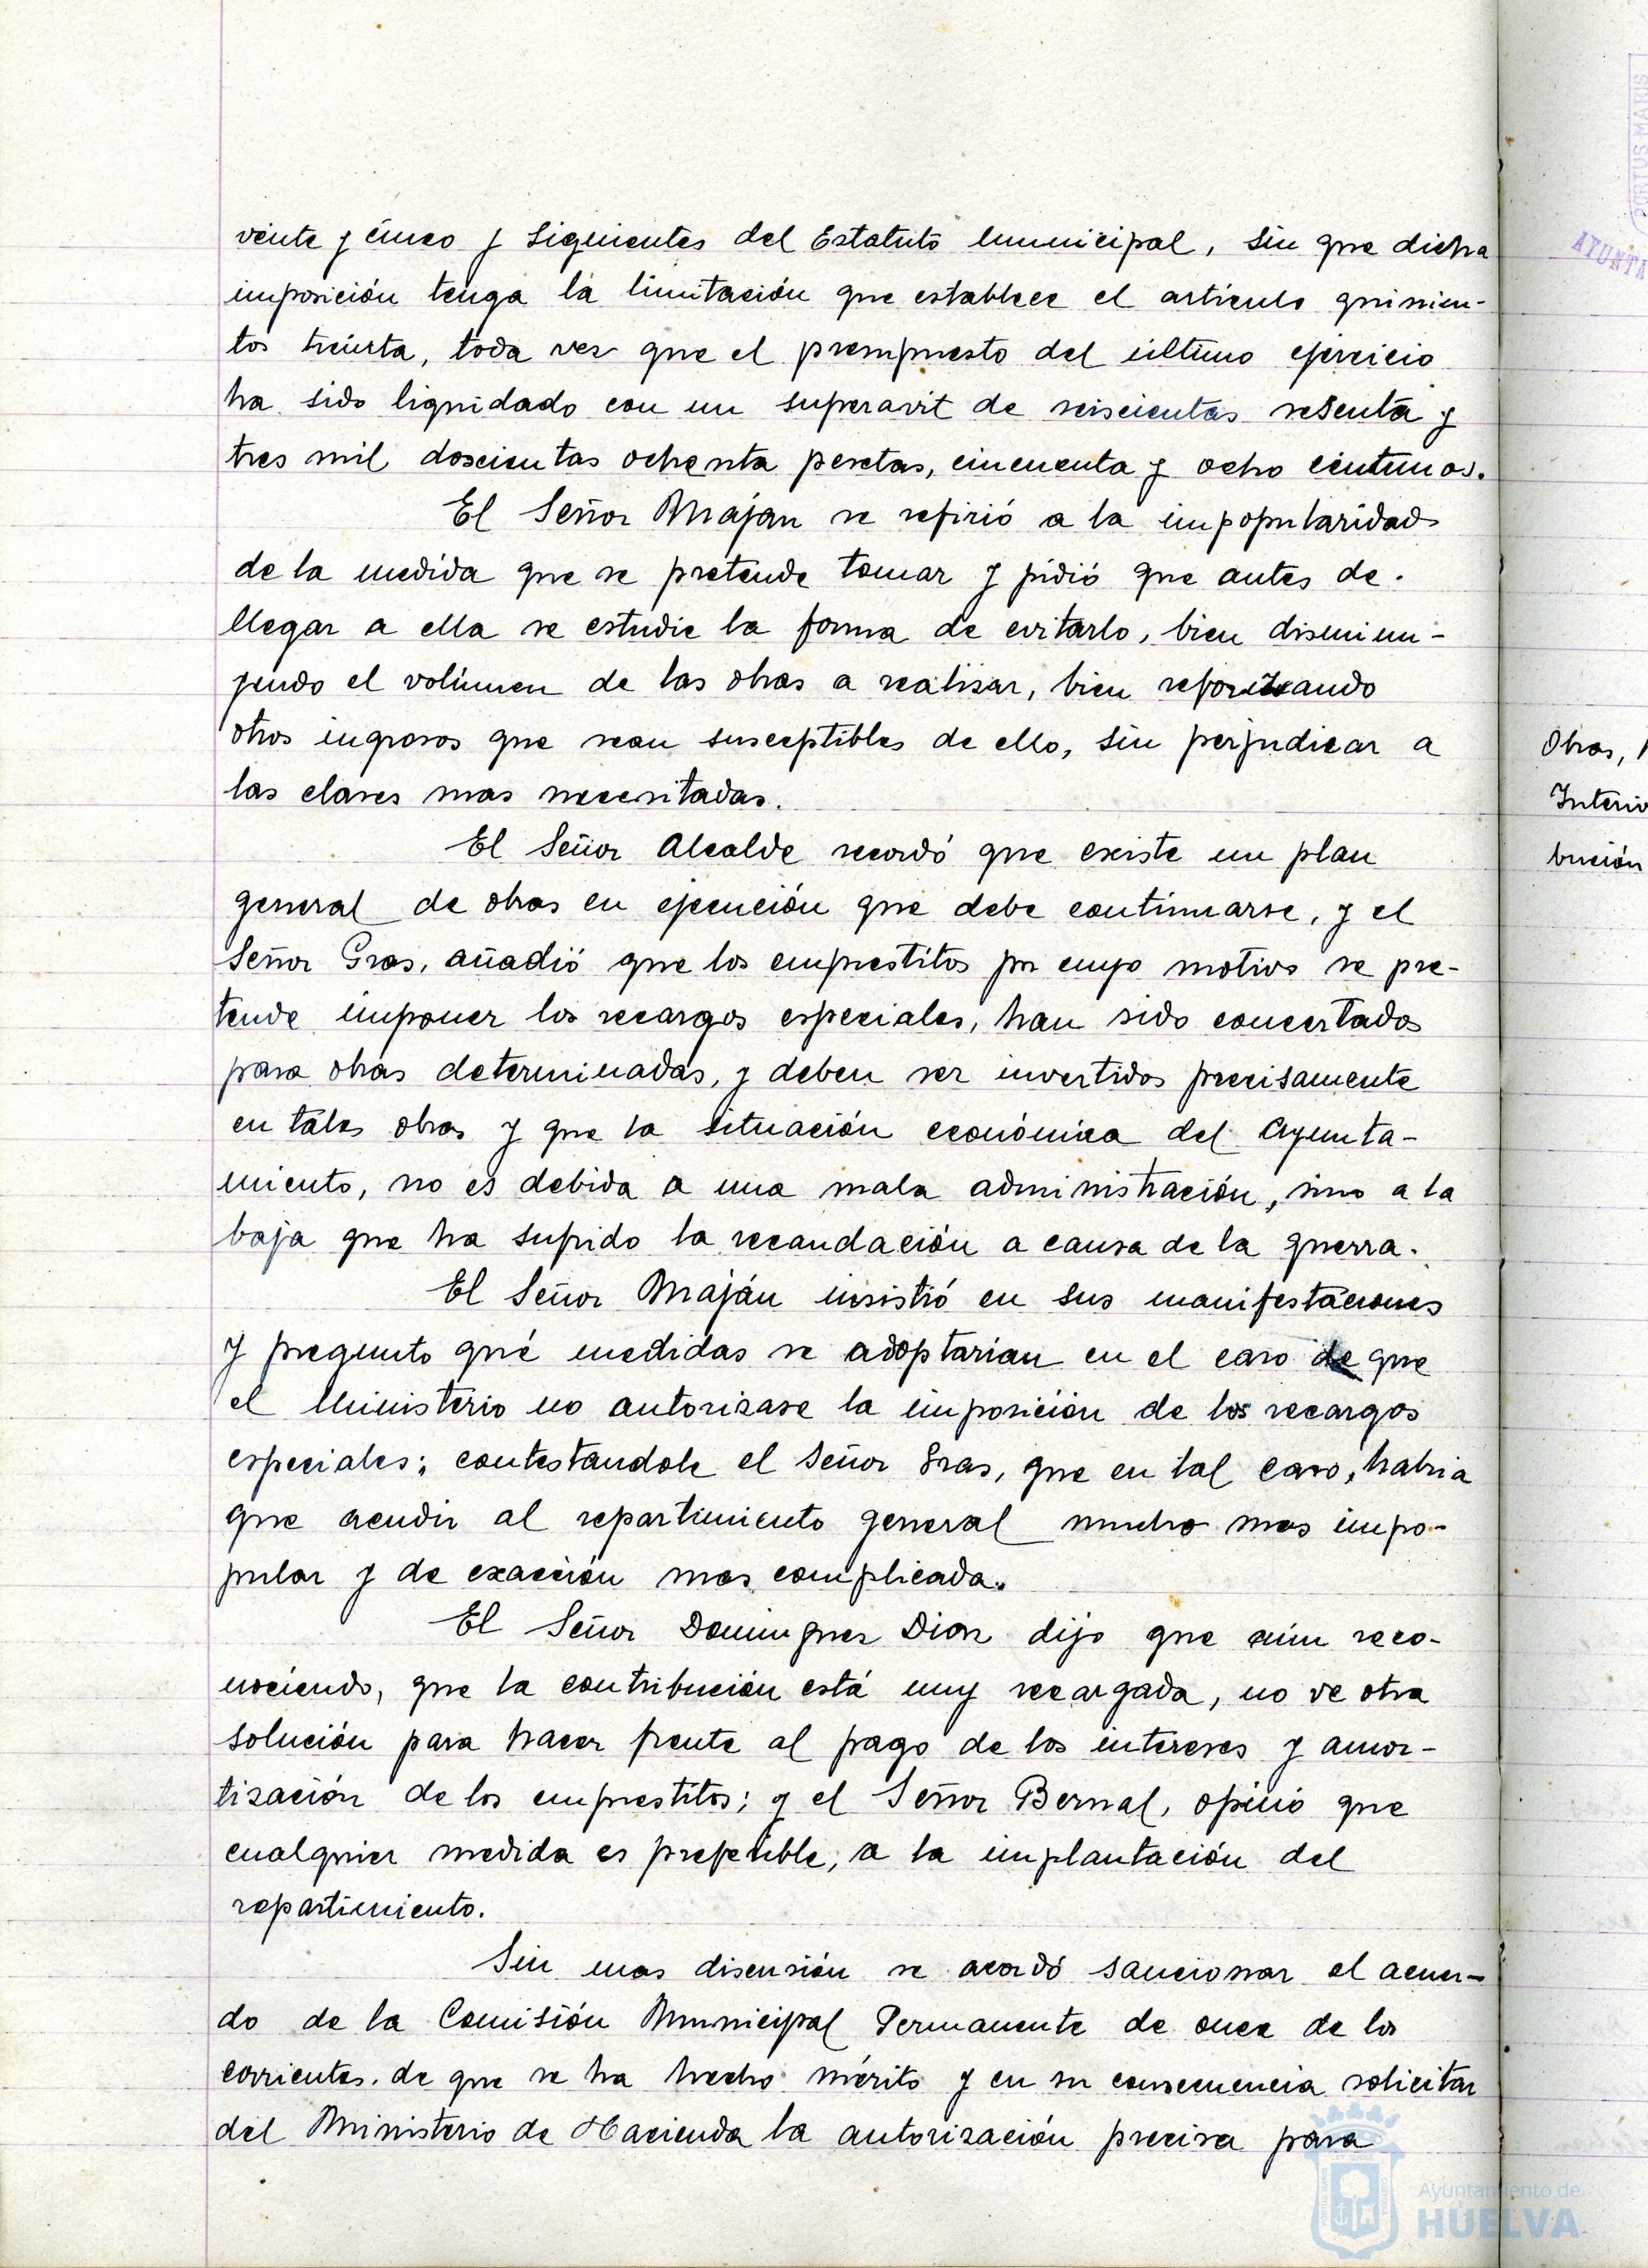 veinte y cinco y siguientes del Estatuto municipal, sin que dicha
imposición tenga la limitación que establece el artículo quinien-
tos treinta, toda vez que el presupuesto del último ejercicio
ha sido liquidado con un superavit de seiscientas sesenta y
tres mil doscientas ochenta pesetas, cincuenta y ocho céntimos.
El Señor Maján se refirió a la impopularidad
de la medida que se pretende tomar y pidió que antes de
llegar a ella se estudie la forma de evitarlo, bien disminu-
yendo el volúmen de las obras a realizar, bien reforzando
otros ingresos que sean susceptibles de ello, sin perjudicar a
las clases mas necesitadas.
El Señor Alcalde recordó que existe un plan
general de obras en ejecución que debe continuarse, y el
Señor Gras, añadió que los empréstitos por cuyo motivo se pre-
tende imponer los recargos especiales, han sido concertados
para obras determinadas, y deben ser invertidos precisamente
en tales obras y que la situación económica del Ayunta-
miento, no es debida a una mala administración, sino a la
baja que ha sufrido la recaudación a causa de la guerra.
El Señor Maján insistió en sus manifestaciones
y pregunto qué medidas se adoptarian en el caso de que
el Ministerio no autorizase la imposición de los recargos
especiales; contestandole el Señor Gras, que en tal caso, habria
que acudir al repartimiento general mucho mas impo-
pular y de exacción mas complicada.
El Señor Dominguez Diaz dijo que aún reco-
nociendo, que la contribución está muy recargada, no ve otra
solución para hacer frente al pago de los intereses y amor-
tización de los empréstitos; y el Señor Bernal, opinó que
cualquier medida es preferible, a la implantación del
repartimiento.
Sin mas discusión se acordó sancionar el acuer-
do de la Comisión Municipal Permanente de once de los
corrientes, de que se ha hecho mérito y en su consecuencia solicitar
del Ministerio de Hacienda la autorización precisa para
Obras,
Interio
bución
PORTUS MARIS
AYUNTA
Ayuntamiento de
HUELVA